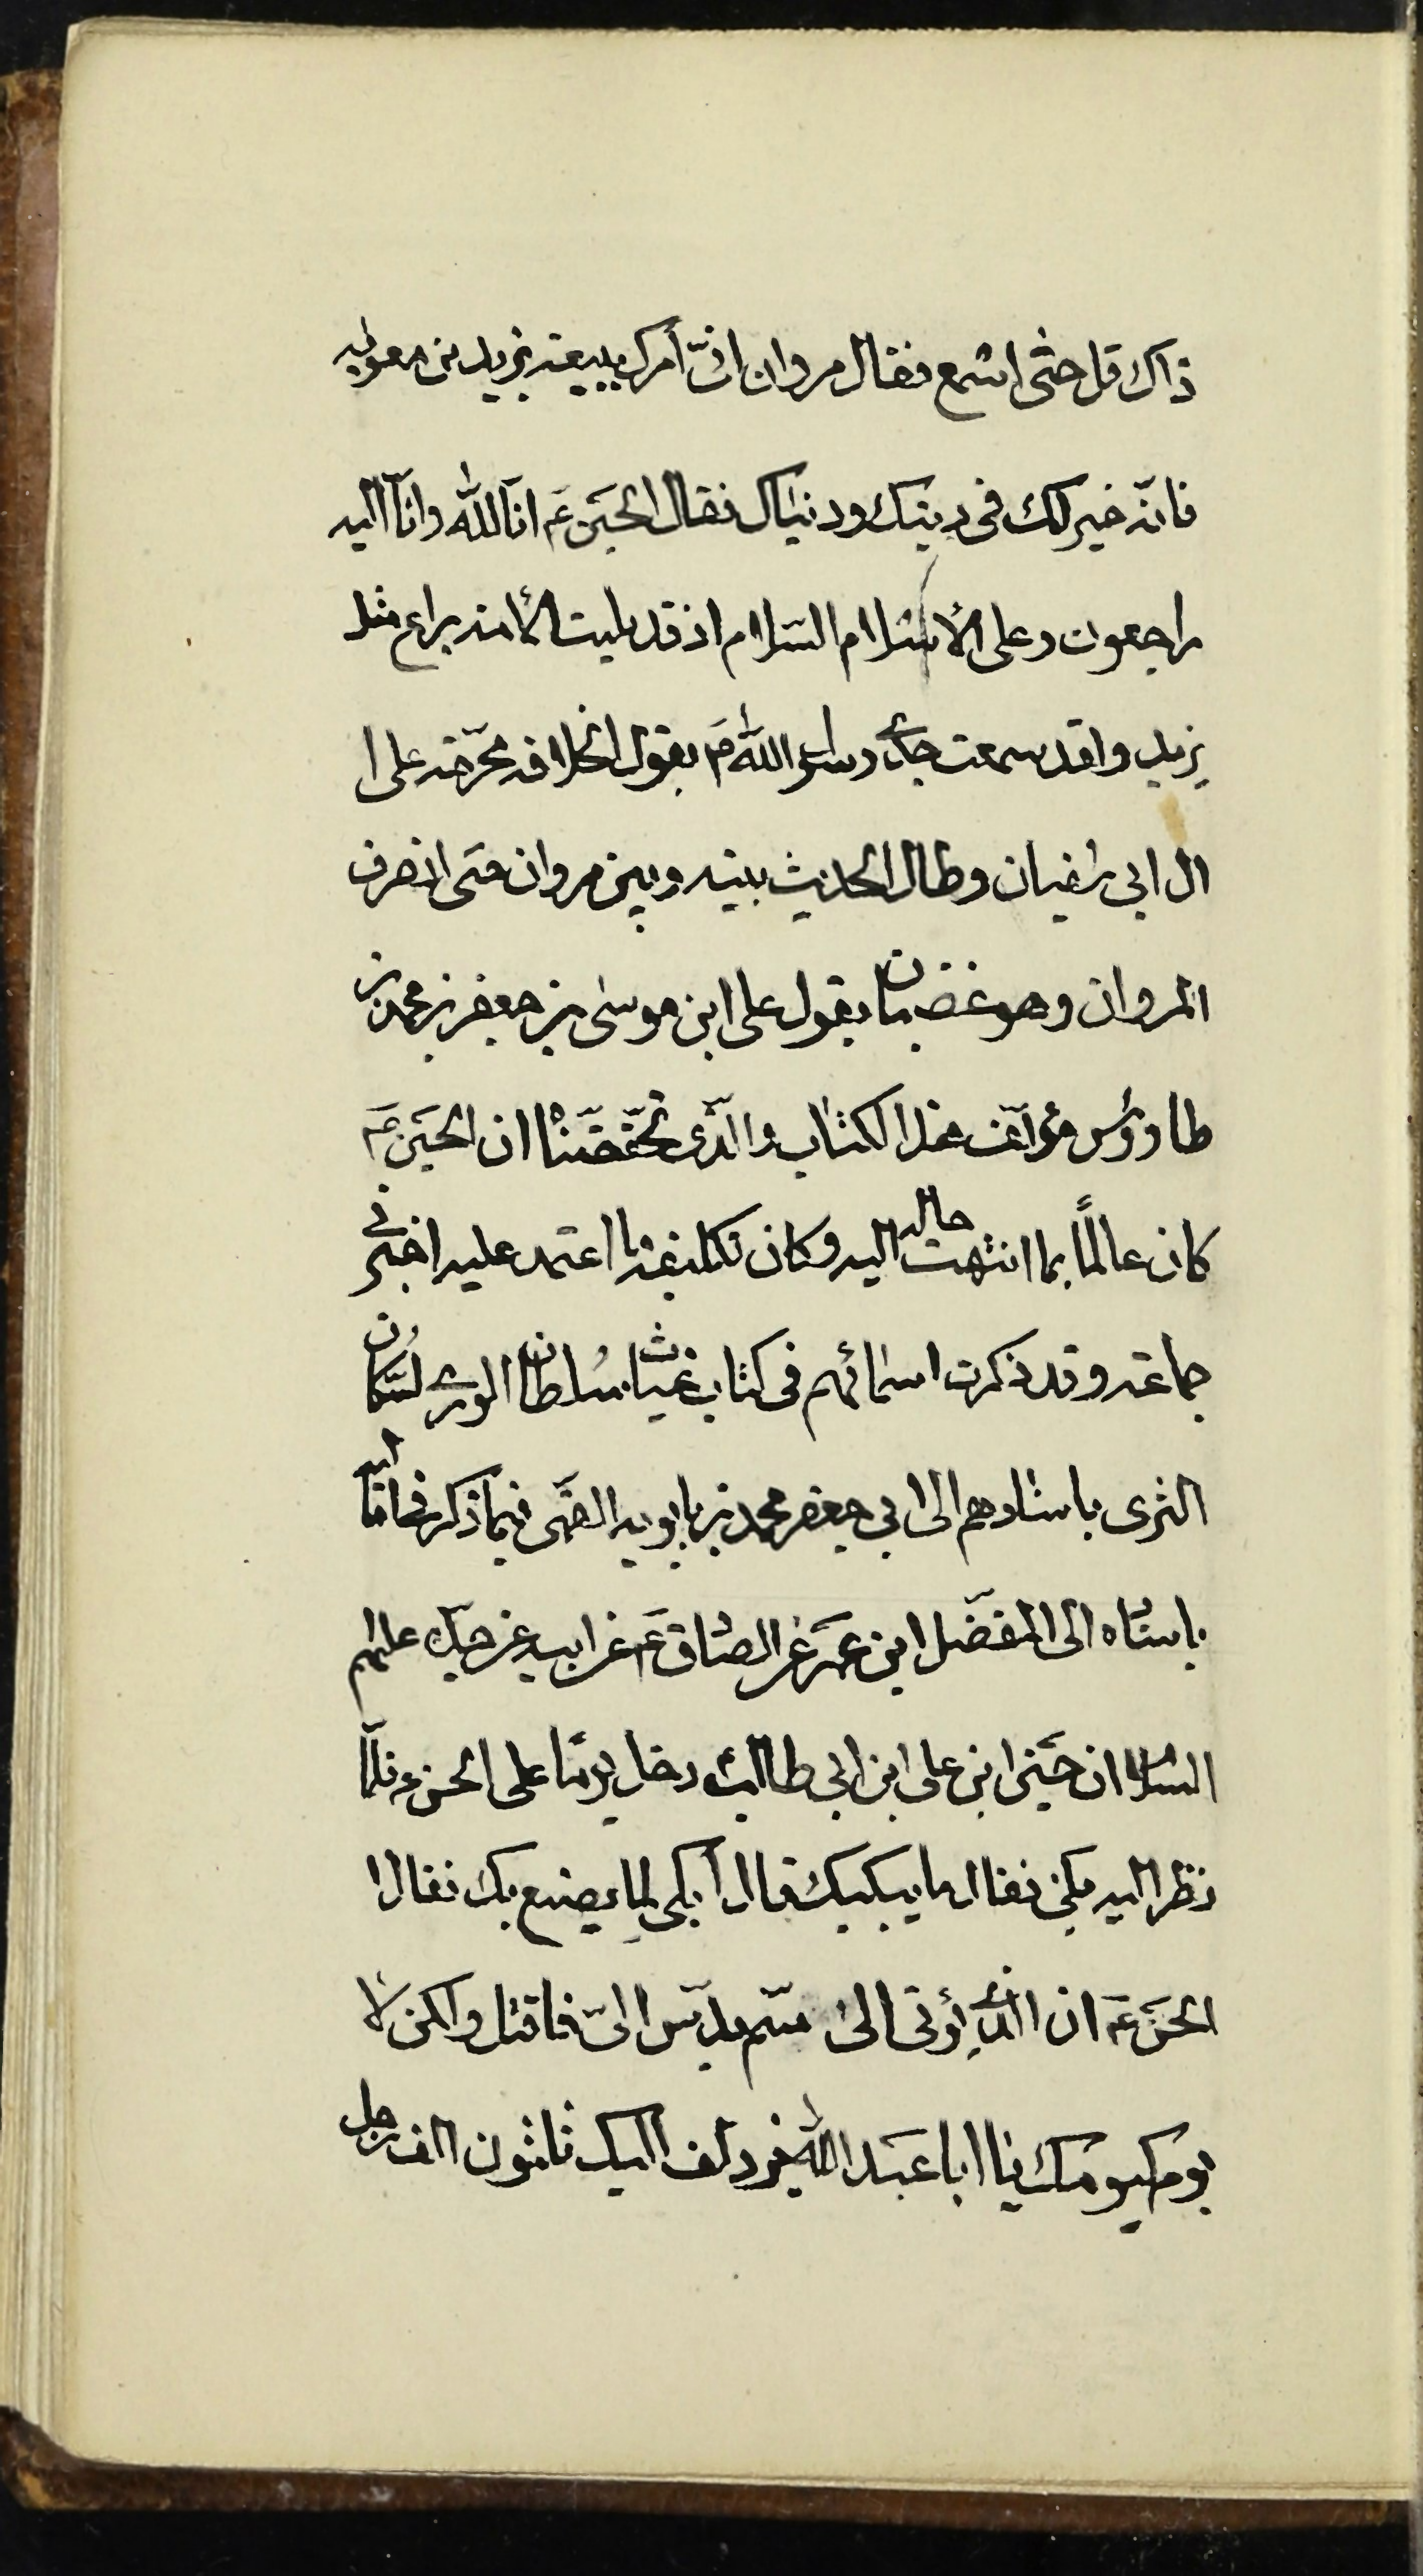 ذاك قل حتى اسمع فقال مروان انّى أمرك ببيعة يزيد بن معوية
فانّه خير لك فى دينك ودنياك فقال الحسين عَ انّا لله وانّا اليه
راجعون وعلى الأسلام السّلام اذ قد بليت الأمة براع مثل
يزيد ولقد سمعت جدّى رسول الله صَ يقول الخلافة محرّمة على ا
ال ابى سفيان وطال الحديث بينه وبين مروان حتى انصرف
المروان وهو غضبان يقول على ابن موسى بن جعفر بن محمد بن
طاووس مؤلّف هذا الكتاب والّذى تحقّقناه ان الحسين عَ
كان عالمًا بما انتهت حاله اليه وكان تكليفه ما اعتمد عليه اخبرنى
جماعة وقد ذكرت اسمائهم فى كتاب غياث سُلطان الورى لسُكّان
الثرى باسنادهم الى ابى جعفر محمد بن بابويه القمّى فيما ذكر فى اماليه
باسناه الى المفضّل ابن عمَر عن الصّادق عَ عن ابيه عن جدّه عليهم
السّلام ان حسَين ابن على ابن ابى طالب دخل يومًا على الحسن ع فلمّا
نظر اليه بكى فقال ما يبكيك قال أبكى لِما يصنع بك فقال ا
الحسَن عَ ان الّذى يؤتى الىّ سّم يدّس الىّ فاقتل ولكن لا
يوم كيومك يا ابا عبَد الله يزدلف اليك ثلثون الف رجل